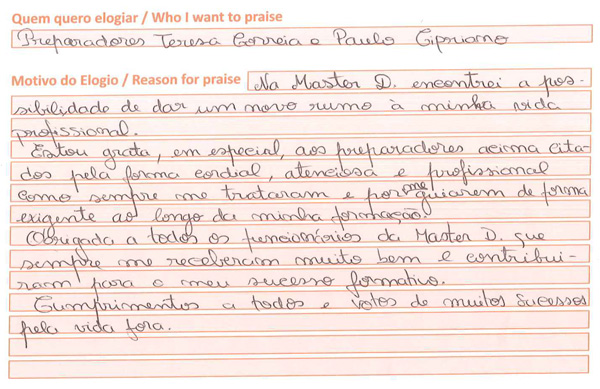 Quem quero elogiar / Who I want to praise
Preparadores Teresa Correia e Paulo Cipriano
Motivo do Elogio / Reason for praise Na Master D. encontrei a pos-
sibilidade de dar um novo rumo à minha vida
profissional.
Estou grata, em especial, aos preparadores acima cita-
dos pela forma cordial, atenciosa e profissional
como sempre me trataram e por me guiarem de forma
exigente ao longo da minha formação.
Obrigada a todos os funcionários da Master D. que
sempre me receberam muito bem e contribui-
ram para o meu sucesso formativo.
Cumprimentos a todos e votos de muitos sucessos
pela vida fora.